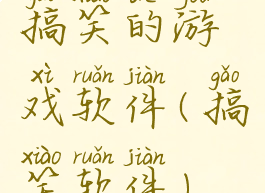 搞笑的游
xì ruǎn jiàn gǎo
戏软件(搞
xiào ruǎn jiàn
笑软件)